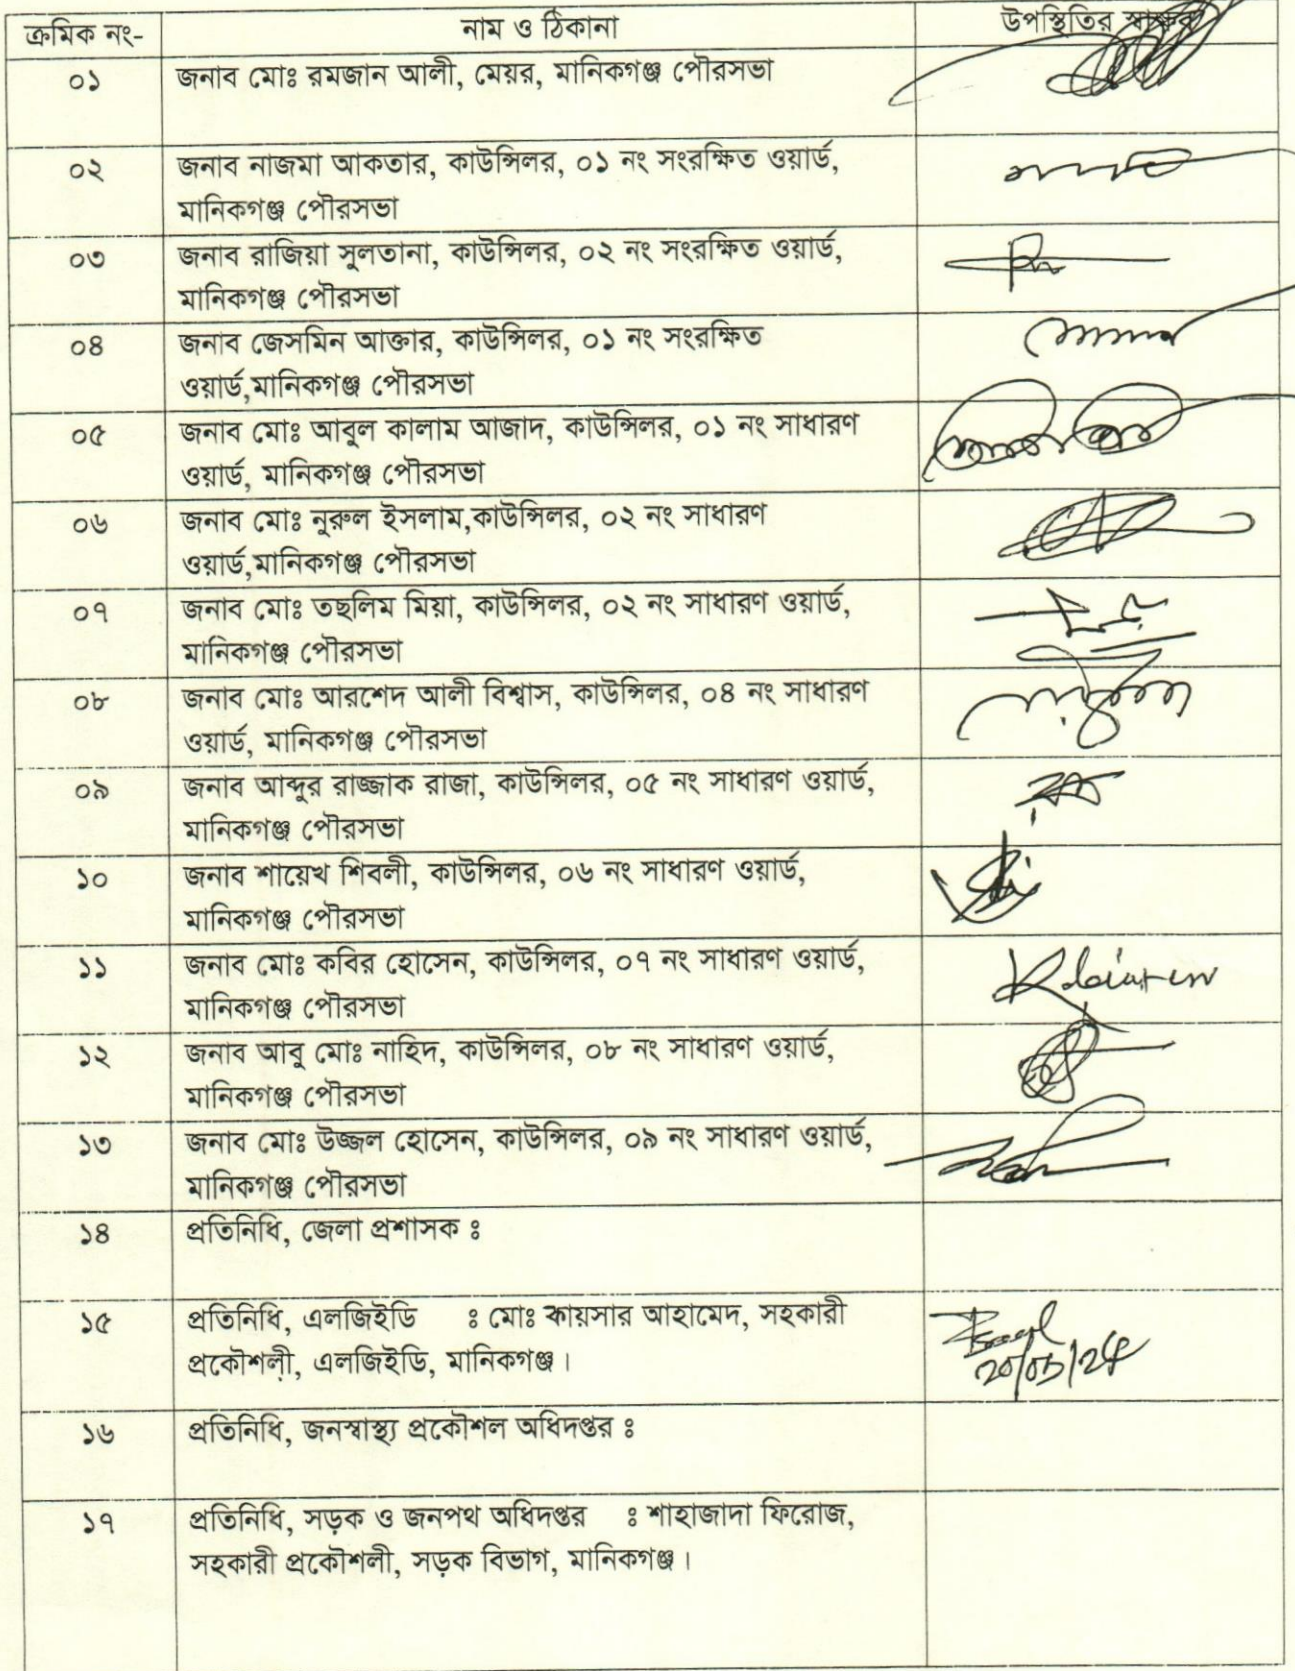 ক্রমিক নং- নাম ও ঠিকানা উপস্থিতির স্বাক্ষর
০১ জনাব মোঃ রমজান আলী, মেয়র, মানিকগঞ্জ পৌরসভা
০২ জনাব নাজমা আকতার, কাউন্সিলর, ০১ নং সংরক্ষিত ওয়ার্ড,
মানিকগঞ্জ পৌরসভা
০৩ জনাব রাজিয়া সুলতানা, কাউন্সিলর, ০২ নং সংরক্ষিত ওয়ার্ড,
মানিকগঞ্জ পৌরসভা
০৪ জনাব জেসমিন আক্তার, কাউন্সিলর, ০১ নং সংরক্ষিত
ওয়ার্ড,মানিকগঞ্জ পৌরসভা
০৫ জনাব মোঃ আবুল কালাম আজাদ, কাউন্সিলর, ০১ নং সাধারণ
ওয়ার্ড, মানিকগঞ্জ পৌরসভা
০৬ জনাব মোঃ নুরুল ইসলাম,কাউন্সিলর, ০২ নং সাধারণ
ওয়ার্ড,মানিকগঞ্জ পৌরসভা
০৭ জনাব মোঃ তছলিম মিয়া, কাউন্সিলর, ০২ নং সাধারণ ওয়ার্ড,
মানিকগঞ্জ পৌরসভা
০৮ জনাব মোঃ আরশেদ আলী বিশ্বাস, কাউন্সিলর, ০৪ নং সাধারণ
ওয়ার্ড, মানিকগঞ্জ পৌরসভা
০৯ জনাব আব্দুর রাজ্জাক রাজা, কাউন্সিলর, ০৫ নং সাধারণ ওয়ার্ড,
মানিকগঞ্জ পৌরসভা
১০ জনাব শায়েখ শিবলী, কাউন্সিলর, ০৬ নং সাধারণ ওয়ার্ড,
মানিকগঞ্জ পৌরসভা
১১ জনাব মোঃ কবির হোসেন, কাউন্সিলর, ০৭ নং সাধারণ ওয়ার্ড,
মানিকগঞ্জ পৌরসভা
১২ জনাব আবু মোঃ নাহিদ, কাউন্সিলর, ০৮ নং সাধারণ ওয়ার্ড,
মানিকগঞ্জ পৌরসভা
১৩ জনাব মোঃ উজ্জল হোসেন, কাউন্সিলর, ০৯ নং সাধারণ ওয়ার্ড,
মানিকগঞ্জ পৌরসভা
১৪ প্রতিনিধি, জেলা প্রশাসক ঃ
১৫ প্রতিনিধি, এলজিইডি ঃ মোঃ কায়সার আহামেদ, সহকারী
প্রকৌশলী, এলজিইডি, মানিকগঞ্জ।
20/05/24
১৬ প্রতিনিধি, জনস্বাস্থ্য প্রকৌশল অধিদপ্তর ঃ
১৭ প্রতিনিধি, সড়ক ও জনপথ অধিদপ্তর ঃ শাহাজাদা ফিরোজ,
সহকারী প্রকৌশলী, সড়ক বিভাগ, মানিকগঞ্জ।